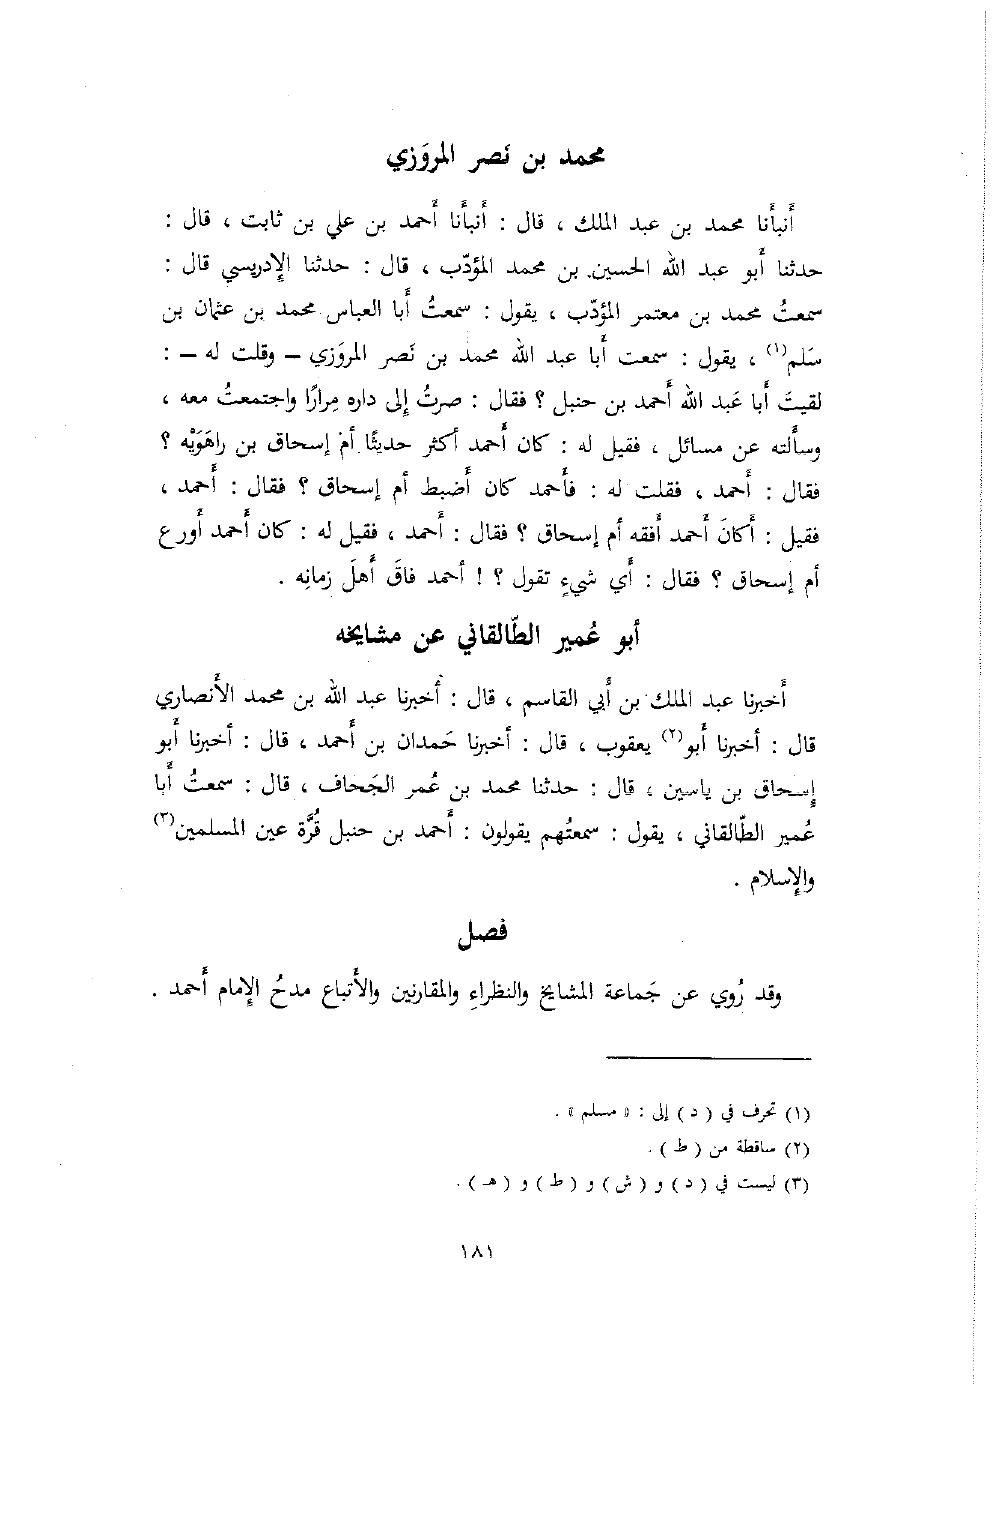 محمد بن نَصر المروَزي
أَنبأَنا محمد بن عبد الملك ، قال : أَنبأَنا أَحمد بن علي بن ثابت ، قال :
حدثنا أَبو عبد الله الحسين بن محمد المؤدّب ، قال : حدثنا الإدريسي قال :
سمعتُ محمد بن معتمر المؤدّب ، يقول : سمعتُ أَبا العباس محمد بن عثمان بن
سَلم(١) ، يقول : سمعت أَبا عبد الله محمد بن نَصر المروَزي – وقلت له – :
لقيتَ أَبا عَبد الله أَحمد بن حنبل ؟ فقال : صرتُ إلى داره مِرارًا واجتمعتُ معه ،
وسأَلته عن مسائل ، فقيل له : كان أَحمد أكثر حديثًا أم إسحاق بن راهَوَيْه ؟
فقال : أَحمد ، فقلت له : فأَحمد كان أَضبط أم إسحاق ؟ فقال : أَحمد ،
فقيل : أَكانَ أَحمد أَفقه أم إسحاق ؟ فقال : أَحمد ، فقيل له : كان أَحمد أَورع
أم إسحاق ؟ فقال : أَي شيءٍ تقول ؟ ! أحمد فاقَ أَهلَ زمانِه .
أبو عُمير الطّالقاني عن مشايخه
أَخبرنا عبد الملك بن أَبي القاسم ، قال : أَخبرنا عبد الله بن محمد الأَنصاري
قال : أخبرنا أَبو(٢) يعقوب ، قال : أخبرنا حَمدان بن أَحمد ، قال : أخبرنا أَبو
إسحاق بن ياسين ، قال : حدثنا محمد بن عُمر الجَحاف ، قال : سمعتُ أَبا
عُمير الطّالقاني ، يقول : سمعتُهم يقولون : أَحمد بن حنبل قُرَّة عين المسلمين(٣)
والإسلام .
فصل
وقد رُوي عن جَماعة المشايخ والنظراءِ والمقارنين والأَتباع مدحُ الإمام أَحمد .
(١) تحرف في ( د ) إلى : « مسلم » .
(٢) ساقطة من ( ط ) .
(٣) ليست في ( د ) و ( ش ) و ( ط ) و ( هـ ) .
١٨١